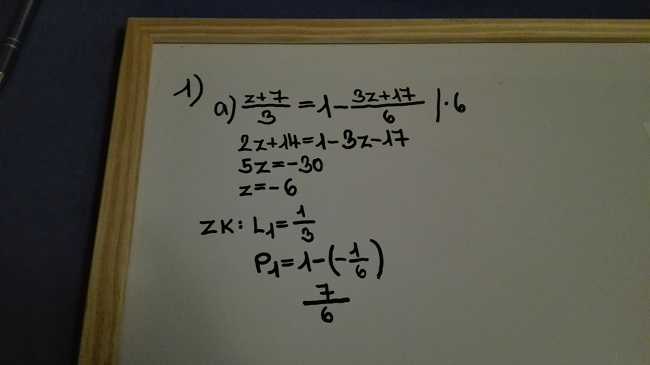 1)
a) z+7/3 = 1 - 3z+17/6 | · 6
2z+14=1-3z-17
5z=-30
z=-6
ZK: L₁=1/3
P₁=1-(-1/6)
7/6